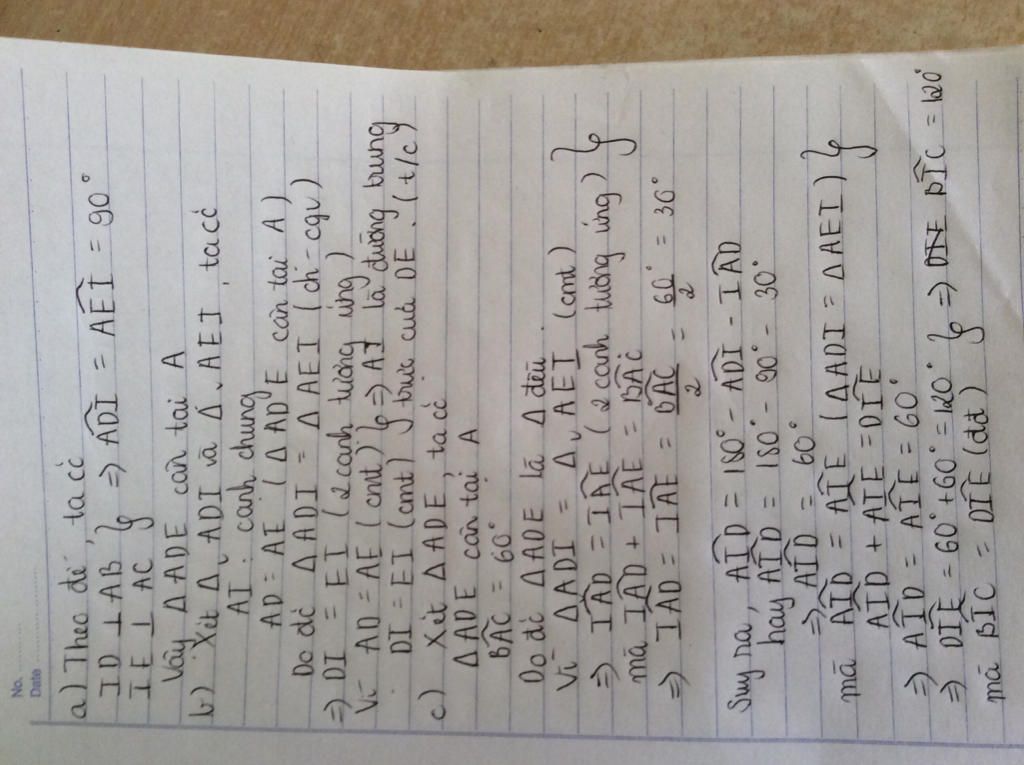 No.
Date
a) Theo đề, ta có
ID ⊥ AB } ⇒ ADI = AEI = 90°
IE ⊥ AC
Vậy Δ ADE cân tại A
b) Xét Δv ADI và Δv AEI, ta có
AI : cạnh chung
AD = AE (Δ ADE cân tại A)
Do đó Δ ADI = Δ AEI (ch - cgv)
⇒ DI = EI (2 cạnh tương ứng)
Vì AD = AE (cmt) } ⇒ AI là đường trung
DI = EI (cmt) trực của DE. (t/c)
c) Xét Δ ADE, ta có
Δ ADE cân tại A
BAC = 60°
Do đó Δ ADE là Δ đều.
Vì Δv ADI = Δv AEI (cmt)
⇒ IAD = IAE (2 cạnh tương ứng) }
mà IAD + IAE = BAC
⇒ IAD = IAE = BAC/2 = 60°/2 = 30°
Suy ra, AID = 180° - ADI - IAD
hay AID = 180° - 90° - 30°
⇒ AID = 60°
mà AID = AIE (Δ ADI = Δ AEI) }
AID + AIE = DIE
⇒ AID = AIE = 60°
⇒ DIE = 60° + 60° = 120° } ⇒ BIC = 120°
mà BIC = DIE (đđ)